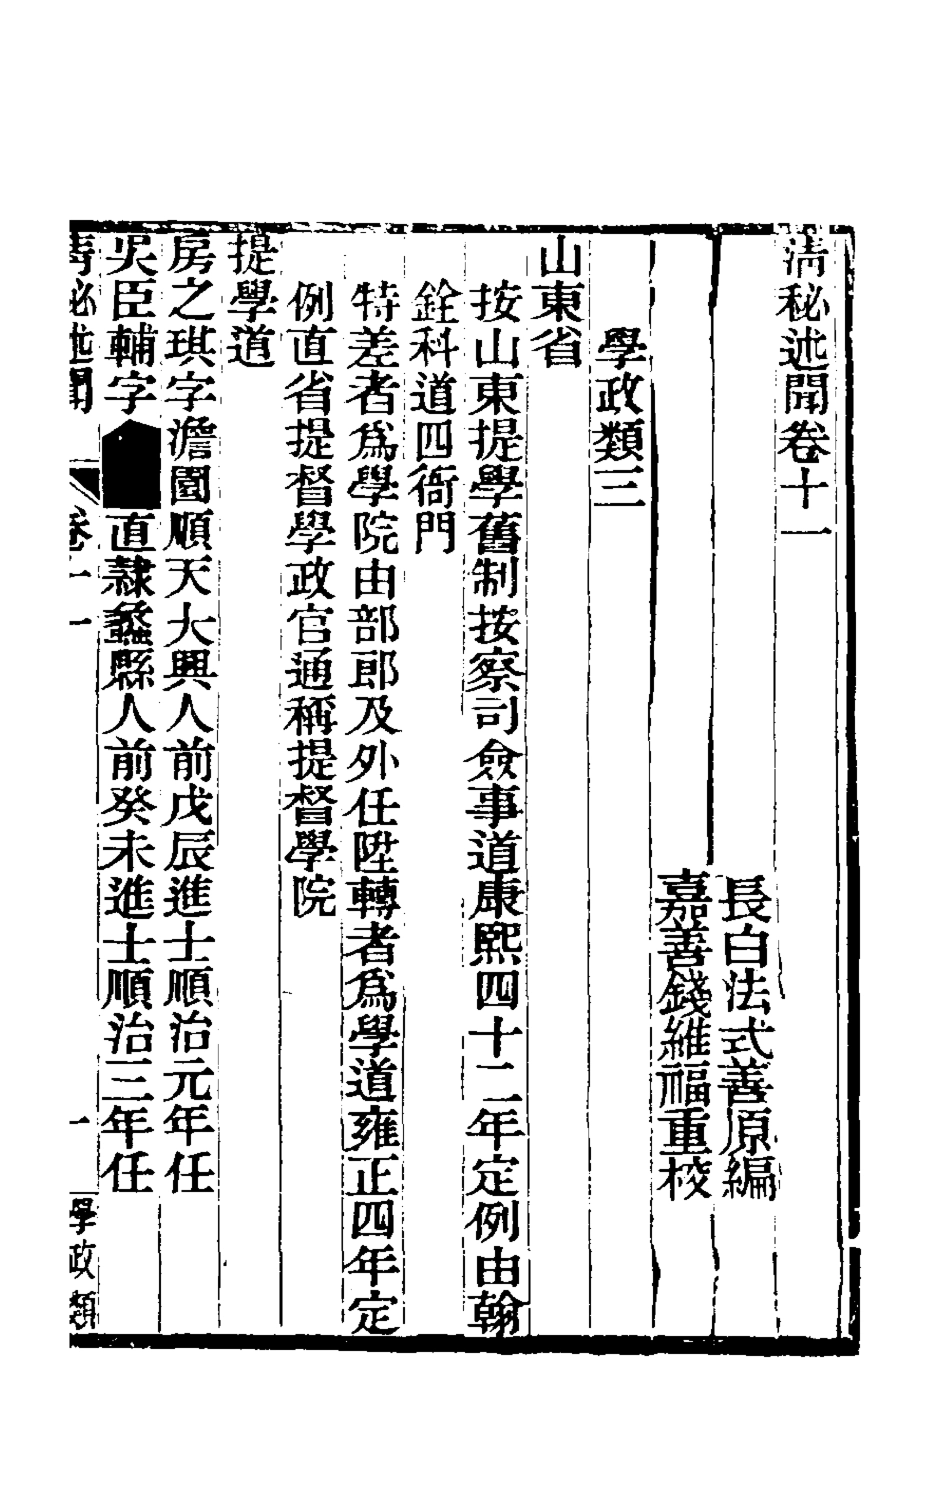 清秘述聞卷十一
長白法式善原編
嘉善錢維福重校
學政類三
山東省
按山東提學舊制按察司僉事道康熙四十二年定例由翰
銓科道四衙門
特差者爲學院由部郎及外任陞轉者爲學道雍正四年定
例直省提督學政官通稱提督學院
提學道
房之琪字澹園順天大興人前戊辰進士順治元年任
吳臣輔字直隸蠡縣人前癸未進士順治三年任
清秘述聞 卷十一 一 學政類